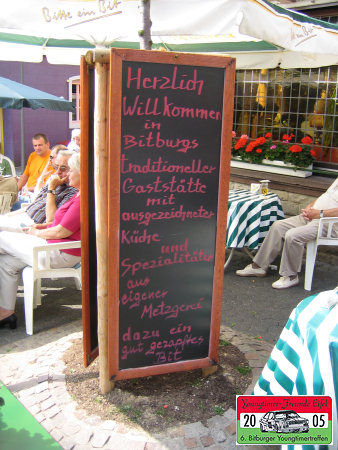 Bitte ein Bit
Bitte ein Bit
Herzlich
Willkommen
in
Bitburgs
traditioneller
Gaststätte
mit
ausgezeichneter
Küche
und
Spezialitäten
aus
eigener
Metzgerei
dazu ein
gut gezapftes Bit
Youngtimer-Freunde Eifel
20 05
6. Bitburger Youngtimertreffen